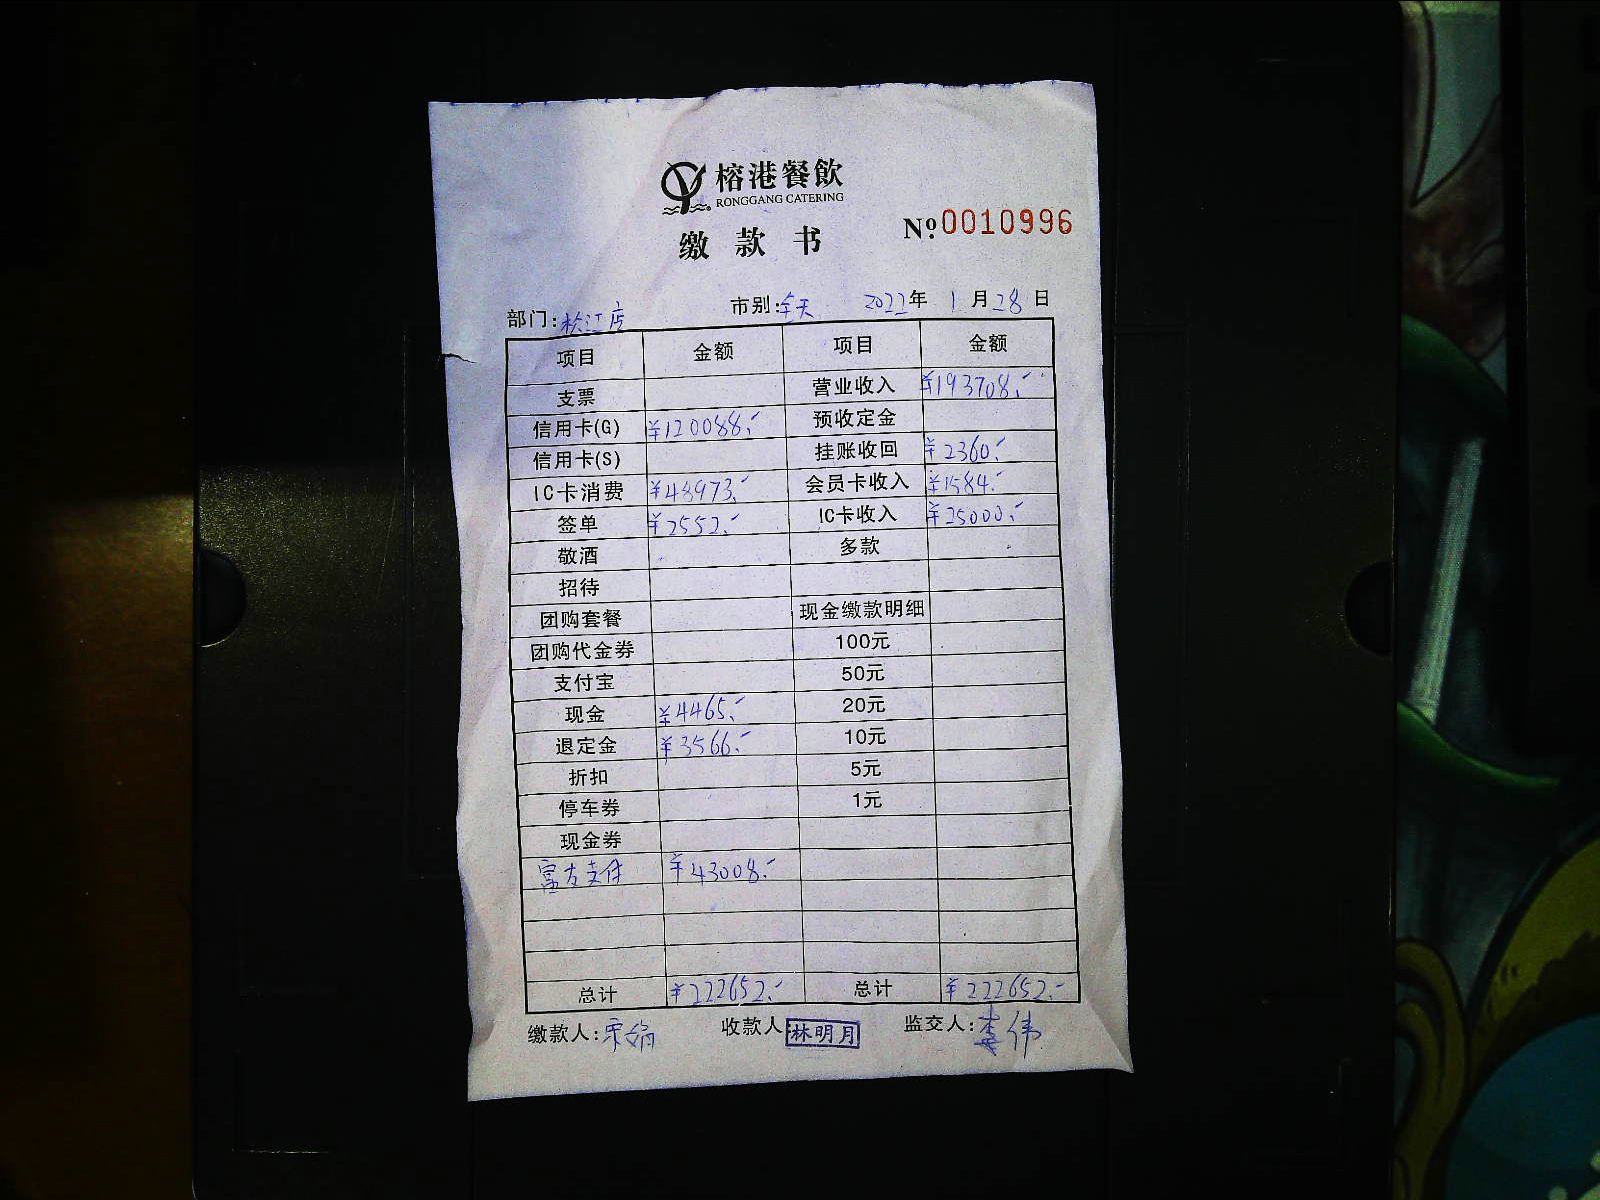 榕港餐飲
RONGGANG CATERING
缴款书
№ 0010996
部门:松江店 市别:全天 2022年 1月28日
项目 金额 项目 金额
支票 营业收入 ¥193708.-
信用卡(G) ¥120088.- 预收定金
信用卡(S) 挂账收回 ¥2360.-
IC卡消费 ¥48973.- 会员卡收入 ¥1584.-
签单 ¥2552.- IC卡收入 ¥25000.-
敬酒 多款
招待
团购套餐 现金缴款明细
团购代金券 100元
支付宝 50元
现金 ¥4465.- 20元
退定金 ¥3566.- 10元
折扣 5元
停车券 1元
现金券
富友支付 ¥43008.-
总计 ¥222652.- 总计 ¥222652.-
缴款人:宋娟 收款人:林明月 监交人:伟